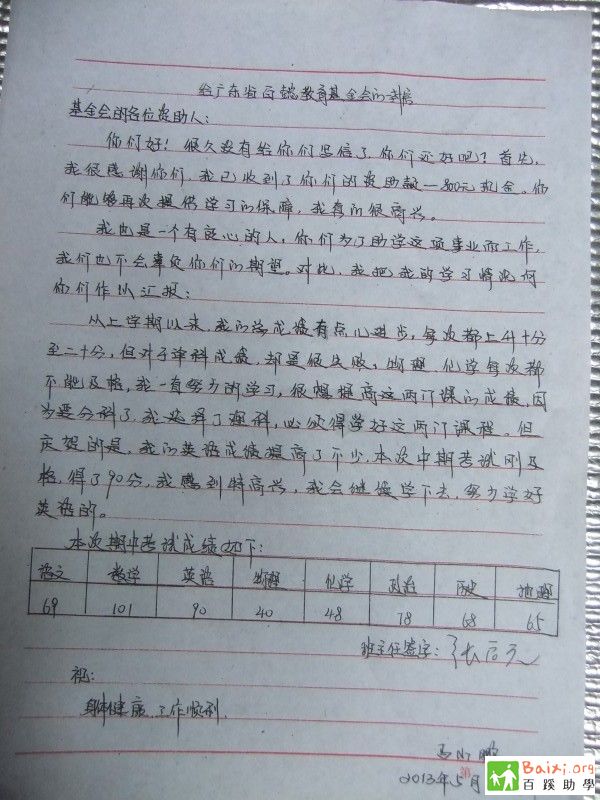 给广东省百蹊教育基金会的封信
基金会的各位资助人：
你们好！很久没有给你们写信了，你们还好吧？首先，
我很感谢你们，我已收到了你们的资助款一800元现金。你
们能够再次提供学习的保障，我真的很高兴。
我也是一个有良心的人，你们为了助学这项事业而工作，
我们也不会辜负你们的期望。对此，我把我的学习情况向
你们作以汇报：
从上学期以来，我的总成绩有点儿进步，每次都上升十分
至二十分，但对于单科成绩，却是很失败，物理、化学每次都
不能及格，我一直努力的学习，很想提高这两门课的成绩，因
为要分科了，我选择了理科，必须得学好这两门课程。但
庆贺的是，我的英语成绩提高了不少，本次中期考试刚及
格，得了90分，我感到特高兴，我会继续学下去，努力学好
英语的。
本次期中考试成绩如下：
语文 数学 英语 物理 化学 政治 历史 地理
69 101 90 40 48 78 68 65
班主任签字：
祝：
身体健康 工作顺利
马 鹏
2013年5月
Baixi.org
百蹊助學